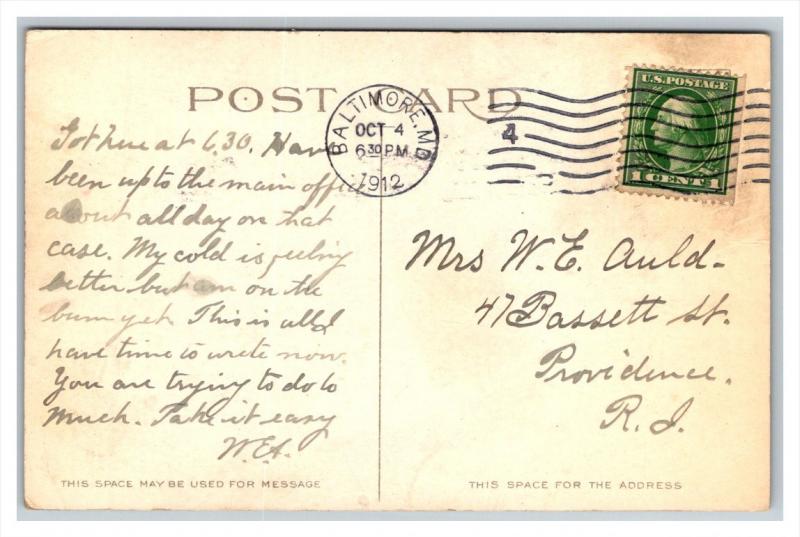 POST CARD
BALTIMORE, MD.
OCT 4
6 30 PM
1912
4
U.S. POSTAGE
1 CENT 1
Got here at 6.30. Have
been up to the main office
about all day on that
case. My cold is feeling
better but am on the
bum yet. This is all I
have time to write now.
You are trying to do to
much. Take it easy
W.E.A.
Mrs W. E. Auld-
47 Bassett St.
Providence.
R. I.
THIS SPACE MAY BE USED FOR MESSAGE
THIS SPACE FOR THE ADDRESS